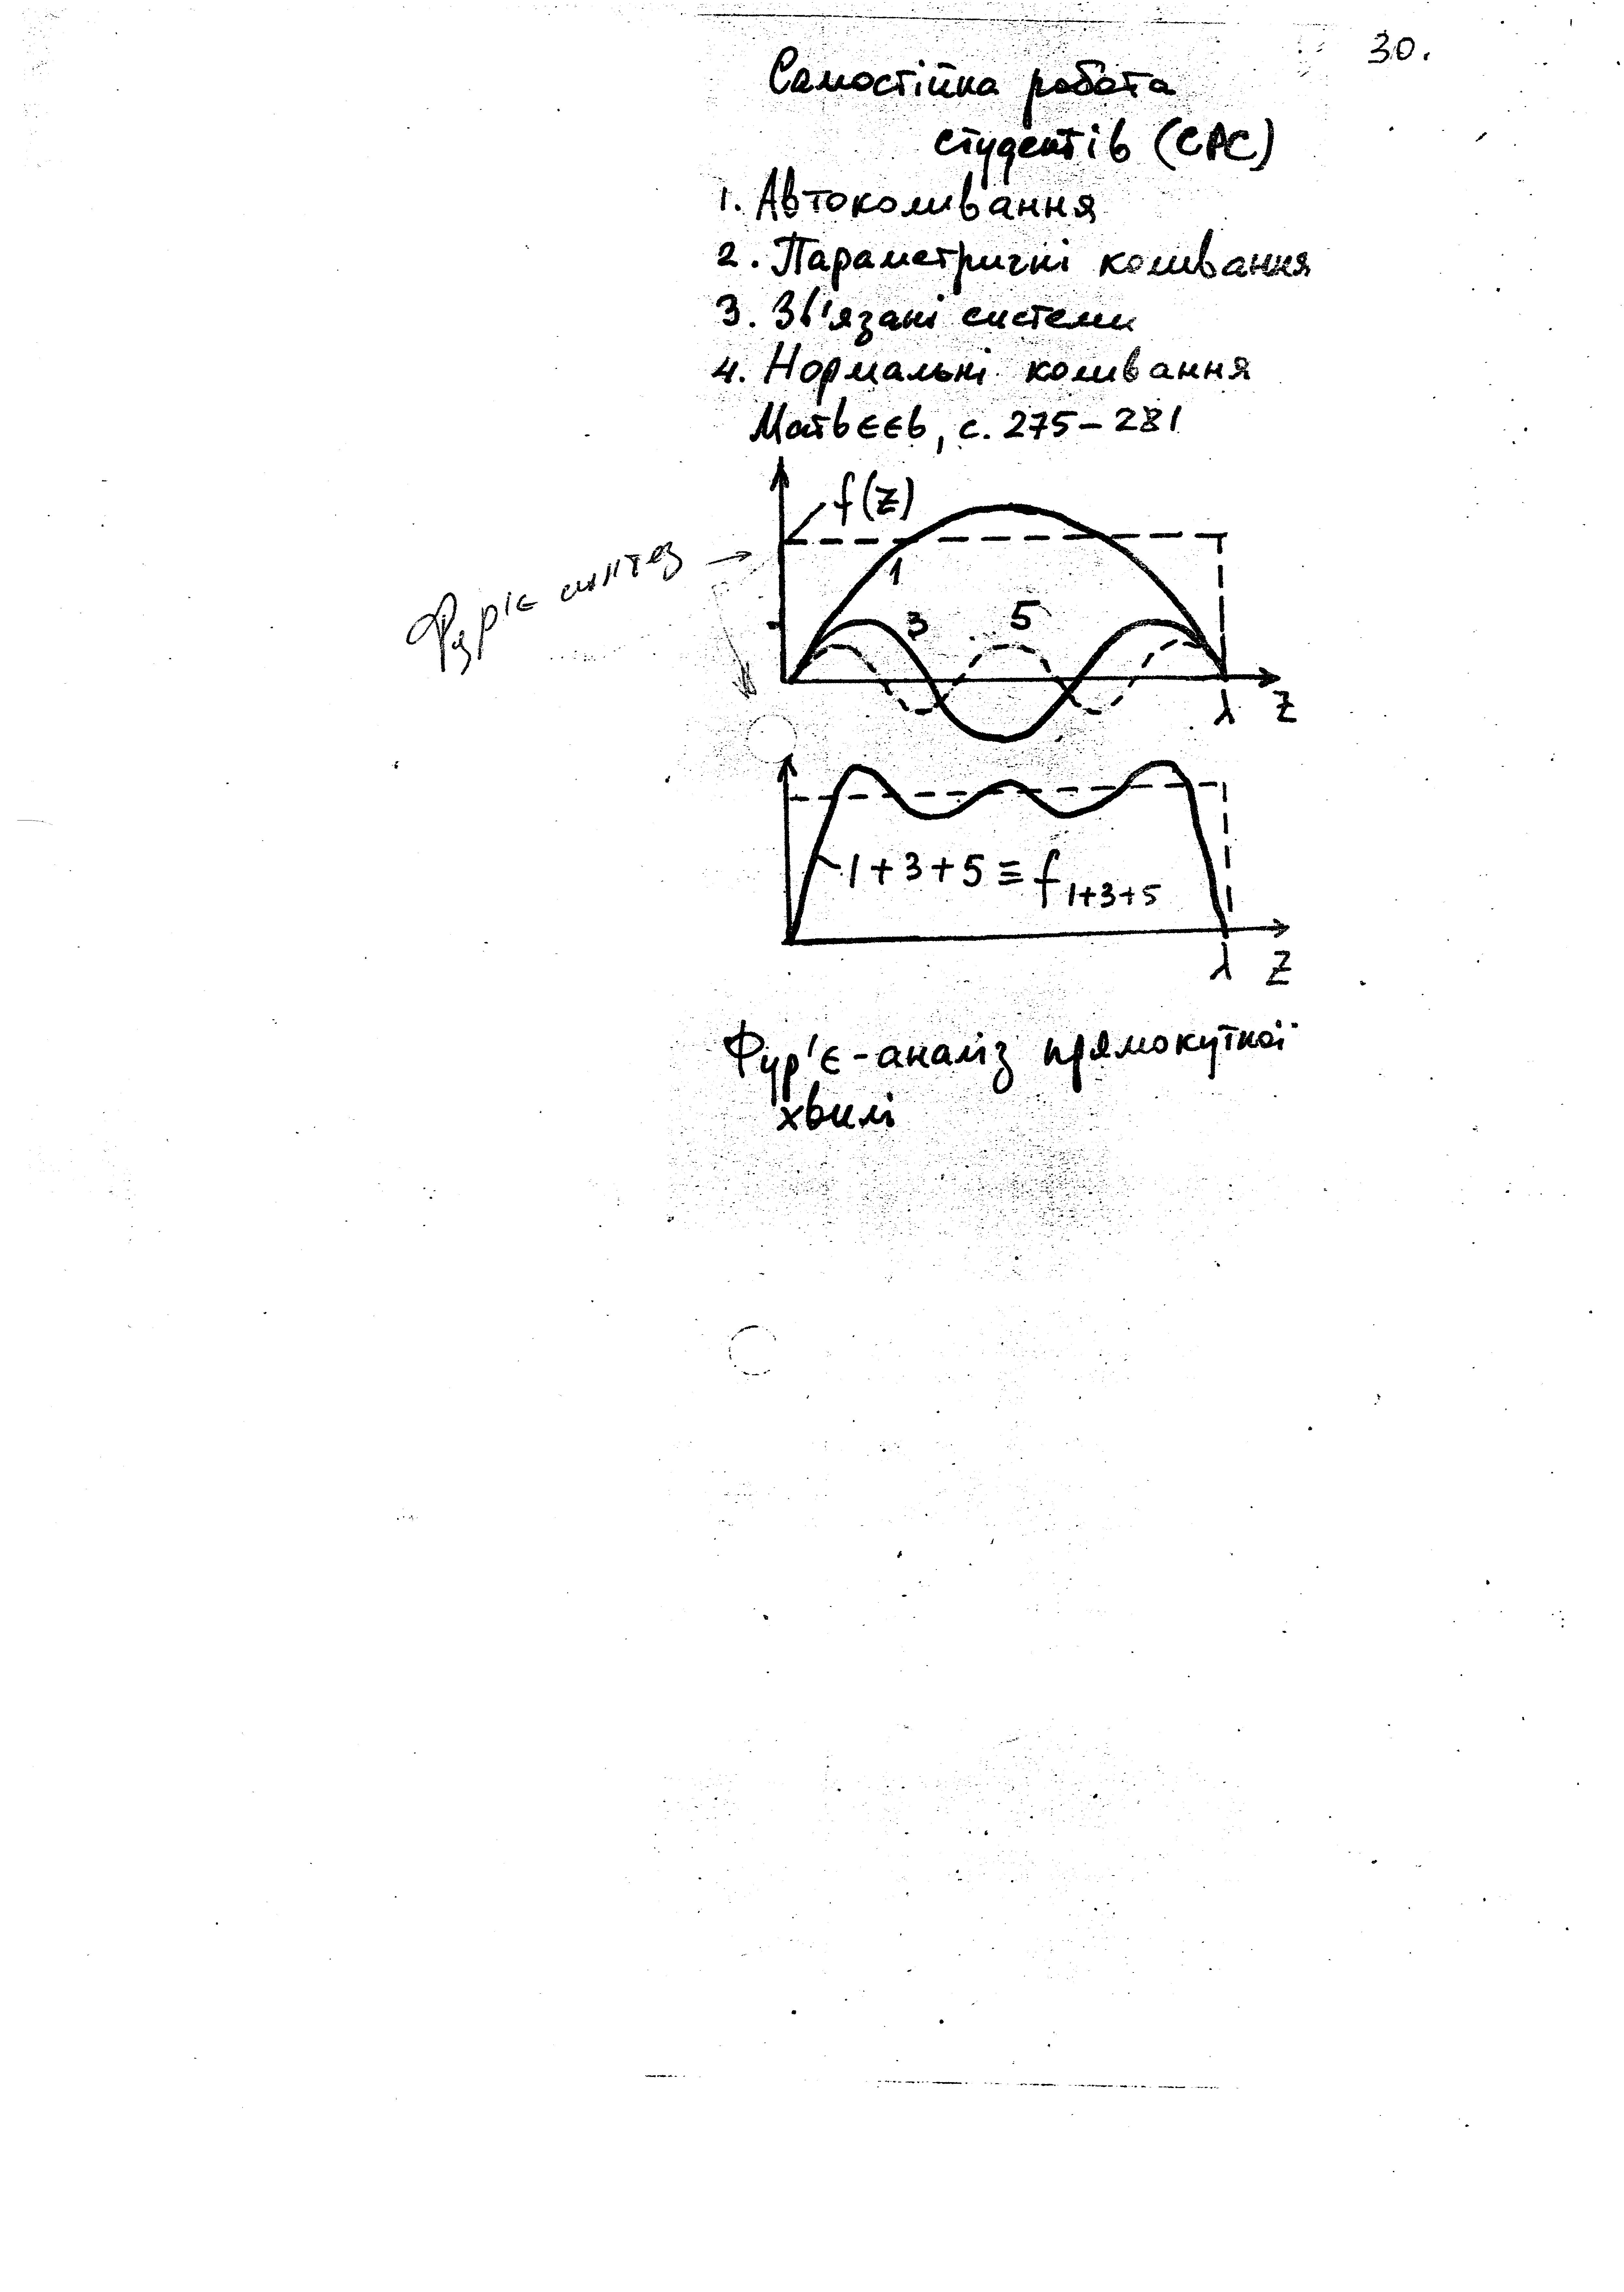 30.
Самостійна робота
студентів (СРС)
1. Автоколивання
2. Параметричні коливання
3. Зв'язані системи
4. Нормальні коливання
Матвєєв, с. 275–281
f(z)
Фур'є синтез →
1
3
5
λ z
1+3+5 ≡ f₁₊₃₊₅
λ z
Фур'є-аналіз прямокутної
хвилі